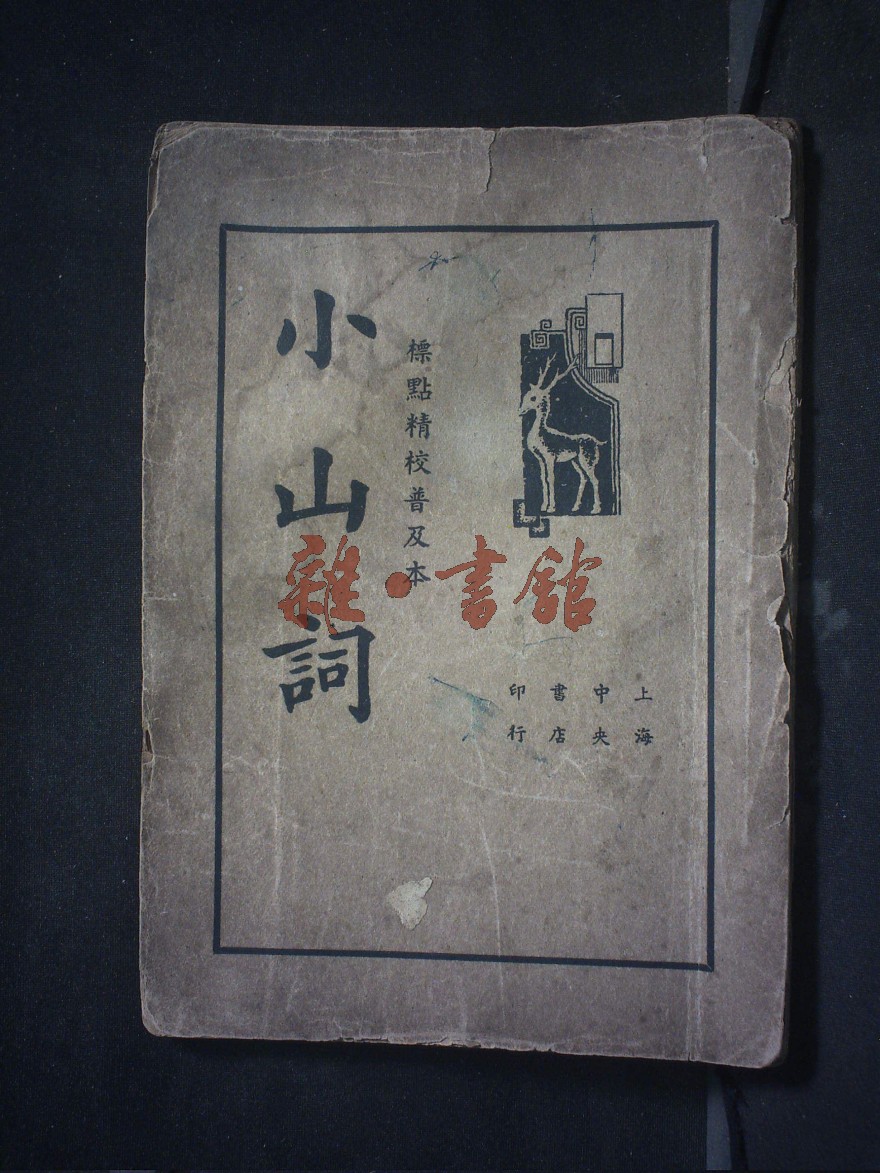 上海
中央
書店
印行
標點精校普及本
小山詞
雜·書館